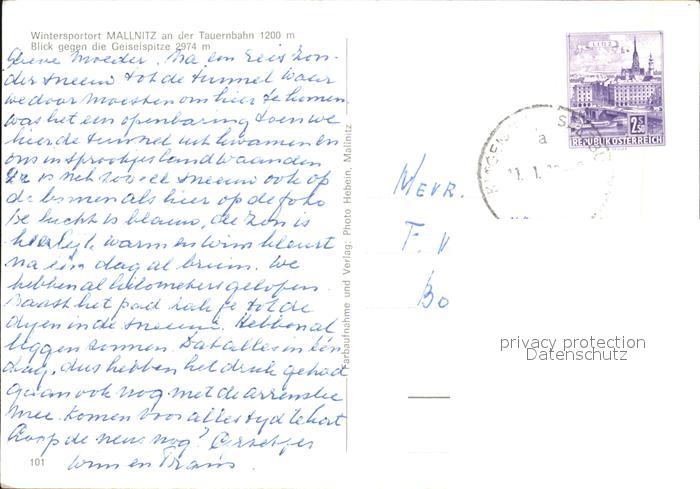 Wintersportort MALLNITZ an der Tauernbahn 1200 m
Blick gegen die Geiselspitze 2974 m
Lieve Moeder, Na een reis zon-
der sneeuw tot de tunnel waar
we door moesten om hier te komen
was het een openbaring toen we
hier de tunnel uit kwamen en
ons in sprookjesland waanden
Er is net zoveel sneeuw ook op
de bomen als hier op de foto
De lucht is blauw, de zon is
heerlijk warm en wim kleurt
na een dag al bruin. We
hebben al kilometers gelopen.
Naast het pad zak je tot de
dijen in de sneeuw. Hebben al
liggen zonnen. Dat alles in één
dag, dus hebben het druk gehad
Gaan ook nog met de arreslee
mee. Komen voor alles tyd tekort
Loop de neus nog? Groetjes
wim en Trans.
101
Farbaufnahme und Verlag: Photo Hebein, Mallnitz
LINZ
2.50
S
REPUBLIK ÖSTERREICH
a
MEVR.
F. V
Bo
privacy protection
Datenschutz